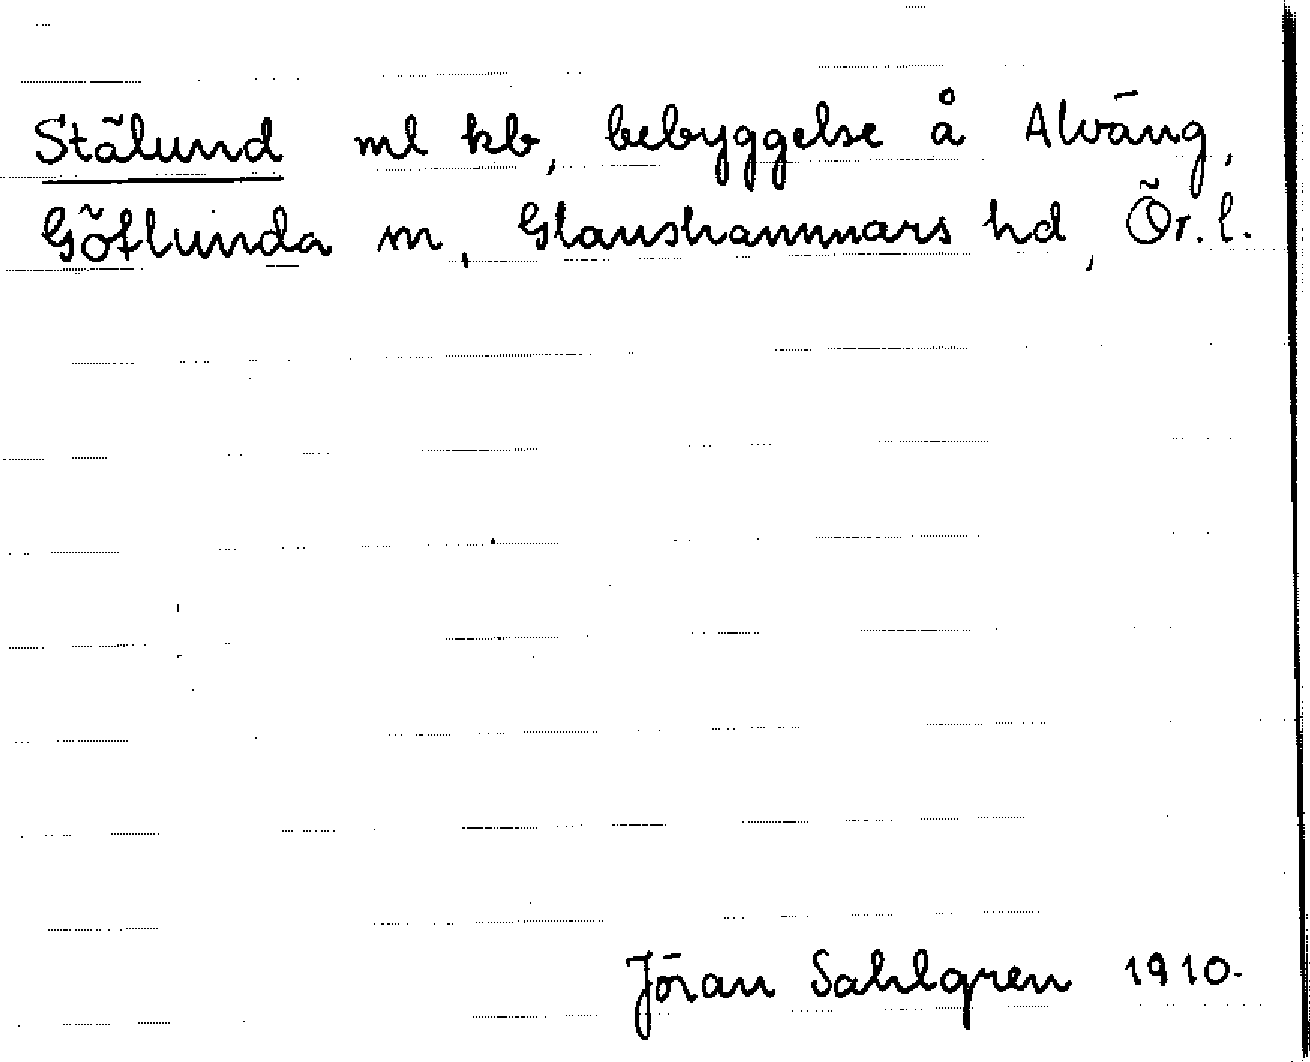 Stälund ml kb, bebyggelse å Alväng,
Götlunda sn, Glanshammars hd, Ör. l.
Jöran Sahlgren 1910.